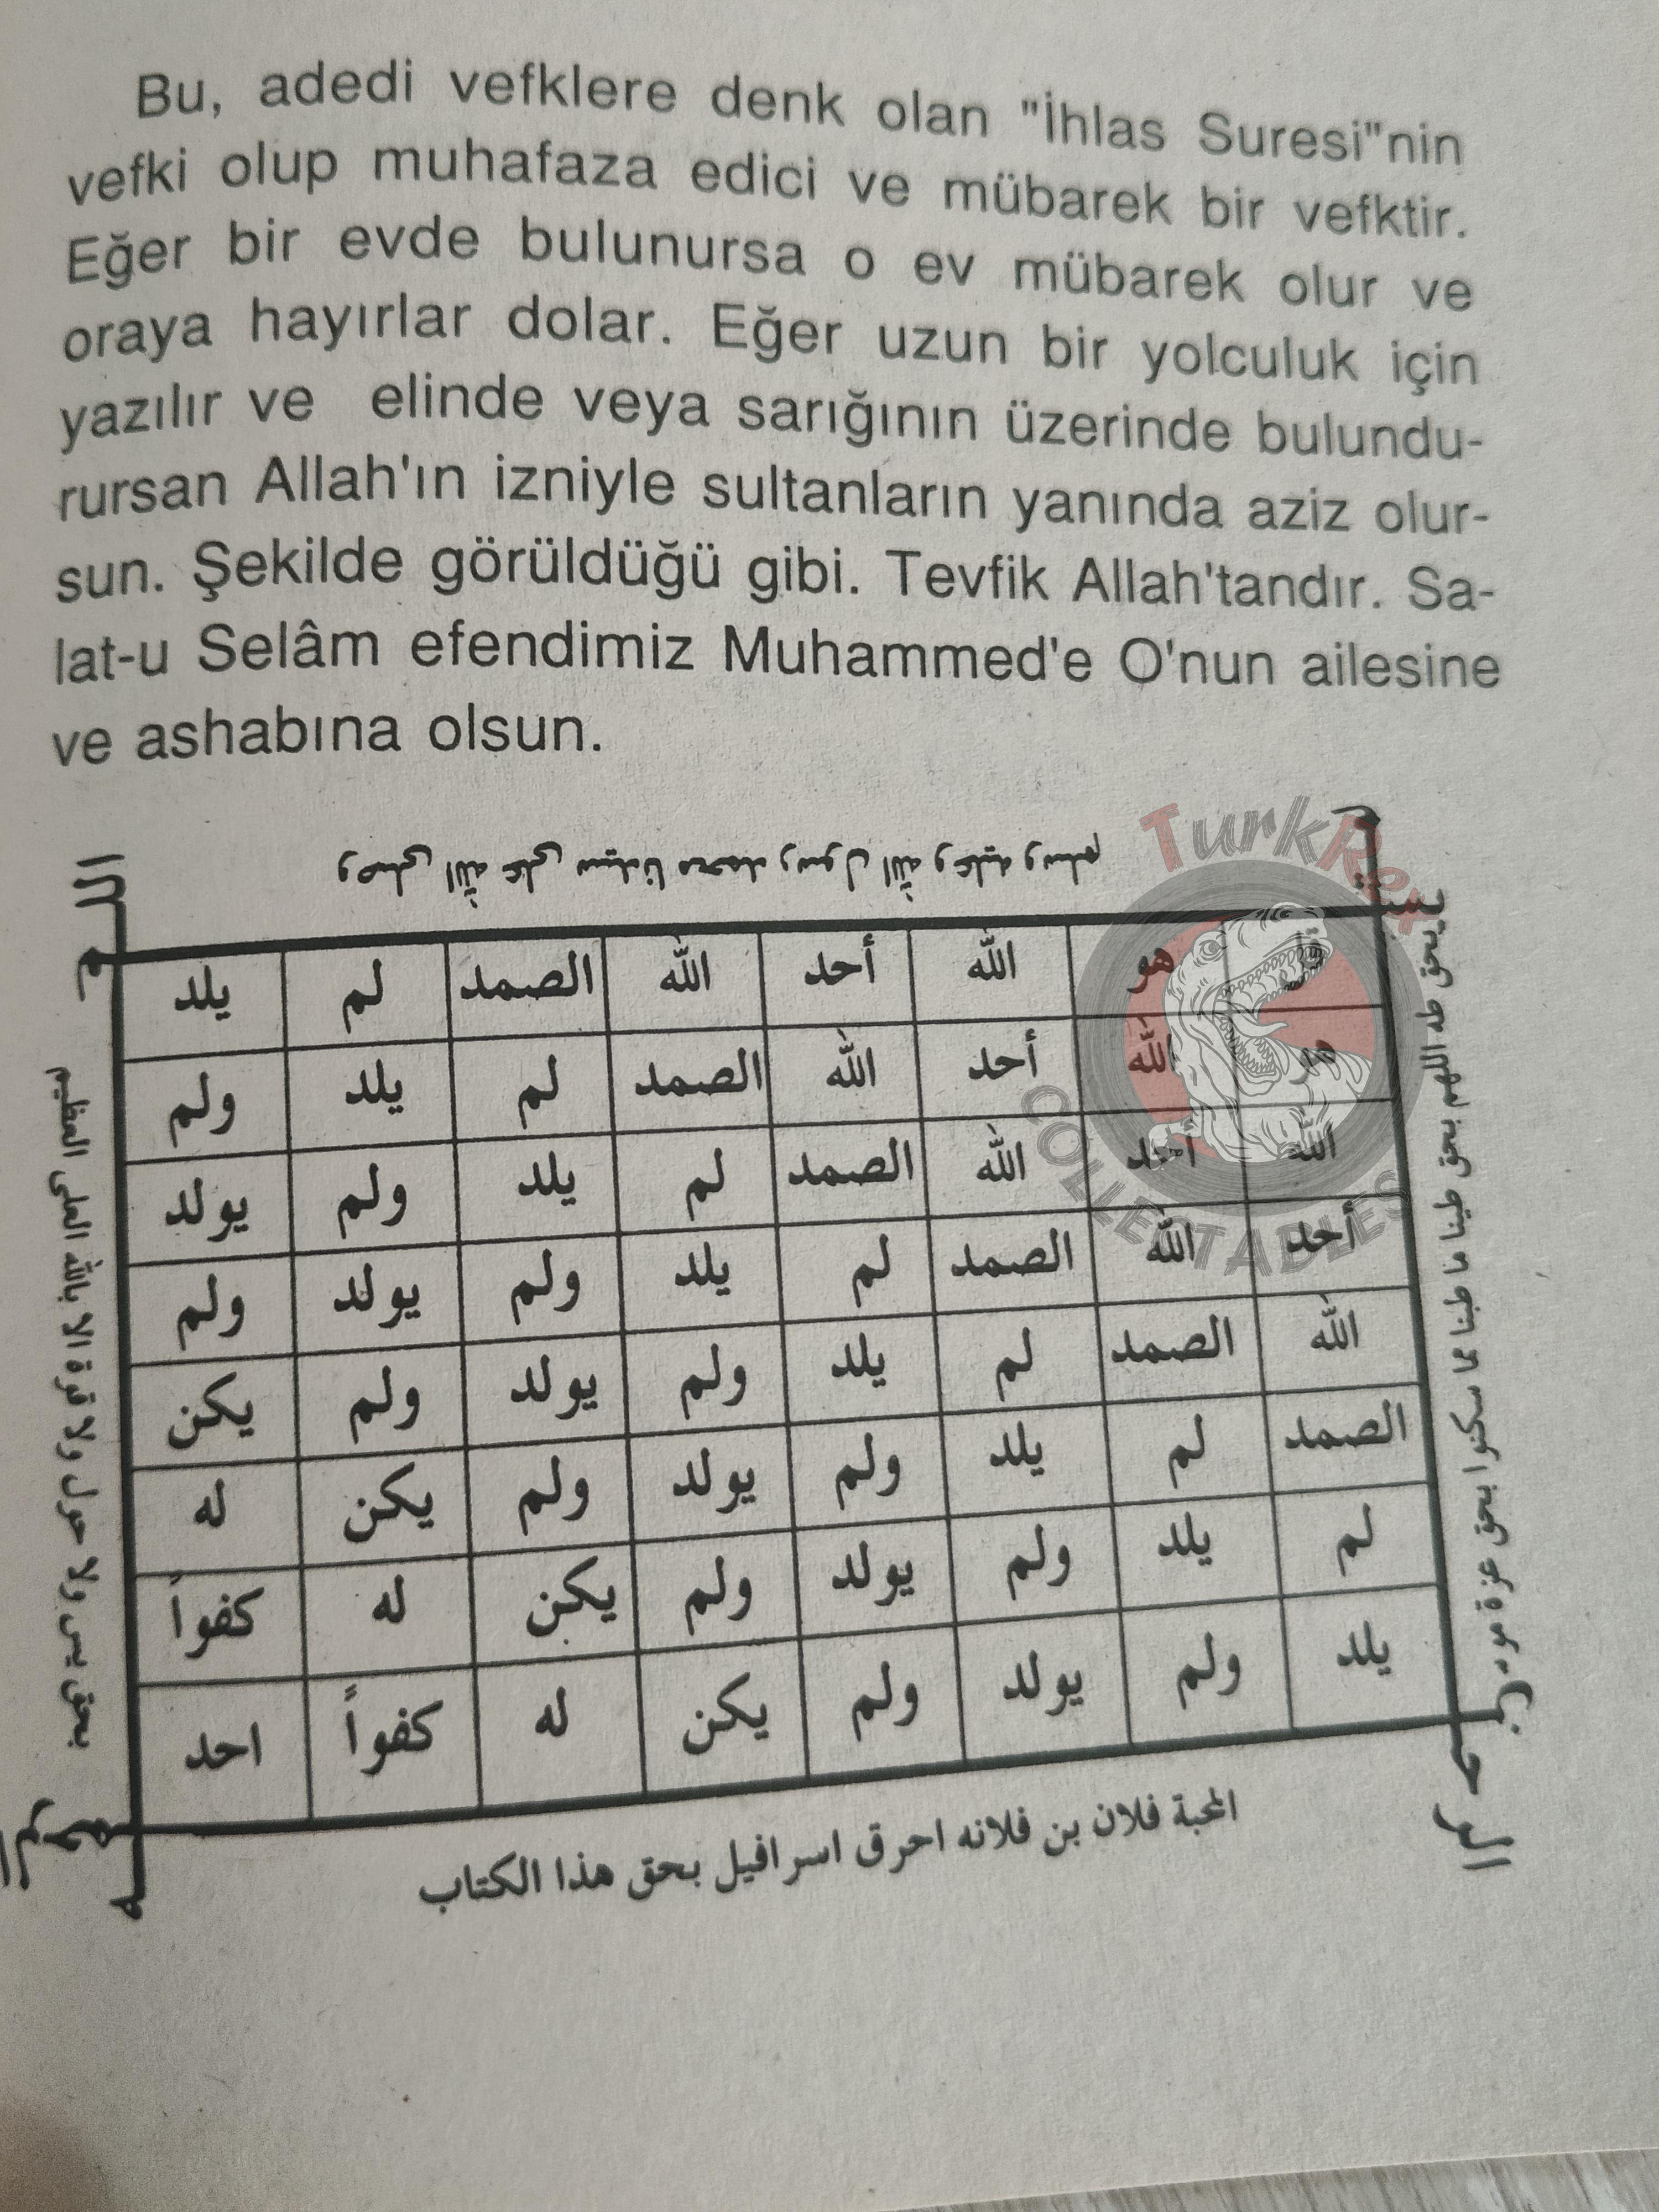 Bu, adedi vefklere denk olan "İhlas Suresi"nin
vefki olup muhafaza edici ve mübarek bir vefktir.
Eğer bir evde bulunursa o ev mübarek olur ve
oraya hayırlar dolar. Eğer uzun bir yolculuk için
yazılır ve elinde veya sarığının üzerinde bulundu-
rursan Allah'ın izniyle sultanların yanında aziz olur-
sun. Şekilde görüldüğü gibi. Tevfik Allah'tandır. Sa-
lat-u Selâm efendimiz Muhammed'e O'nun ailesine
ve ashabına olsun.
TurkRex
COLLECTABLES
وصلى الله على سيدنا محمد رسول الله وعليه وسلم
هو الله أحد الله الصمد لم يلد
هو الله أحد الله الصمد لم يلد ولم
الله أحد الله الصمد لم يلد ولم يولد
أحد الله الصمد لم يلد ولم يولد ولم
الله الصمد لم يلد ولم يولد ولم يكن
الصمد لم يلد ولم يولد ولم يكن له
لم يلد ولم يولد ولم يكن له كفواً
يلد ولم يولد ولم يكن له كفواً احد
بحق طه اللهم بحق طينا ما طبنا مما سكنوا بحق عزة
بحق يس ولا حول ولا قوة الا بالله العلى العظيم
المحبة فلان بن فلانه احرق اسرافيل بحق هذا الكتاب